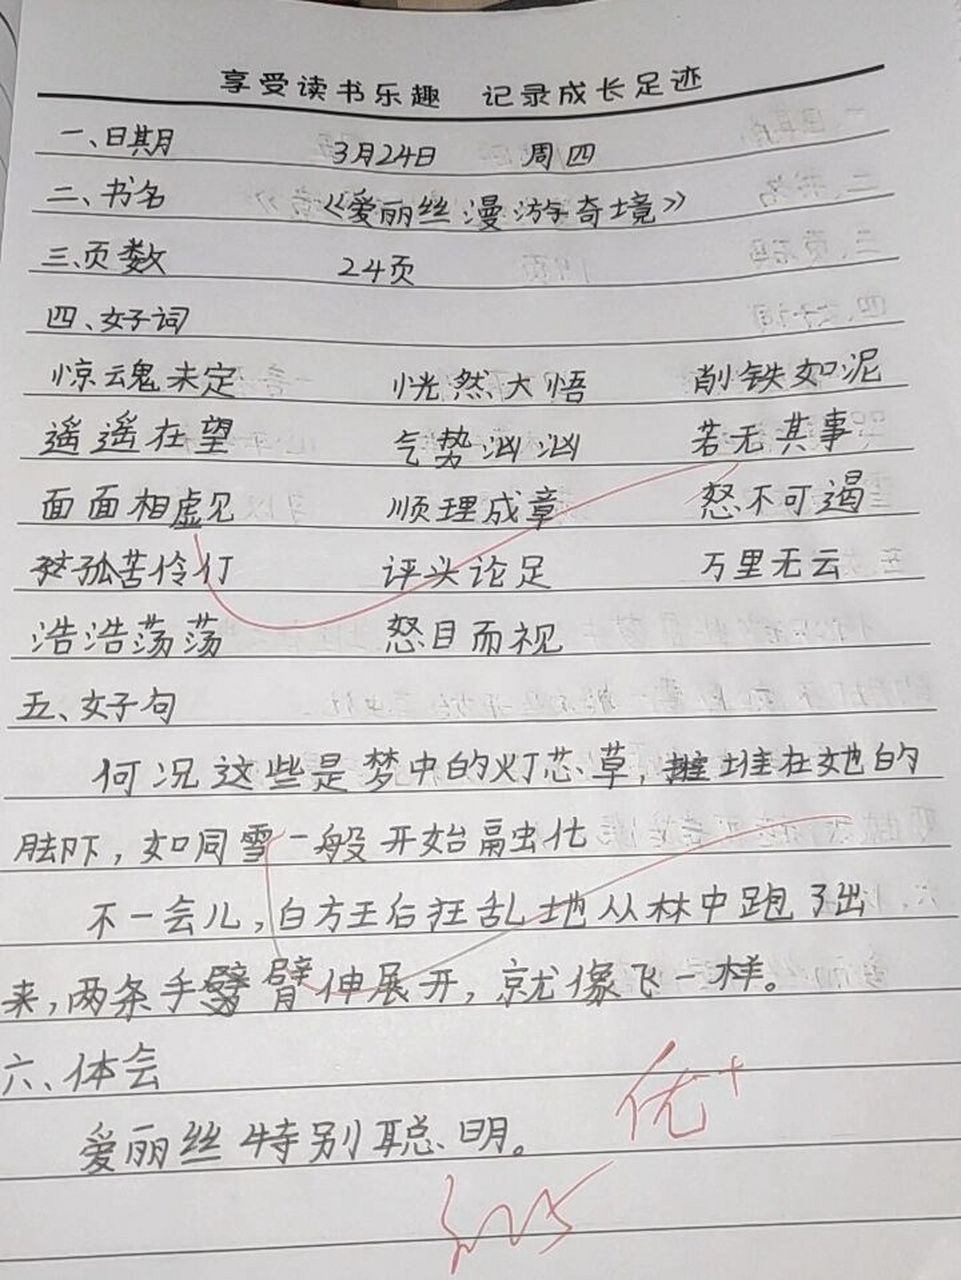 享受读书乐趣 记录成长足迹
一、日期 3月24日 周四
二、书名 《爱丽丝漫游奇境》
三、页数 24页
四、好词
惊魂未定 恍然大悟 削铁如泥
遥遥在望 气势汹汹 若无其事
面面相虚见 顺理成章 怒不可遏
孤苦伶仃 评头论足 万里无云
浩浩荡荡 怒目而视
五、好句
何况这些是梦中的灯芯草，堆在她的
脚下，如同雪一般开始融化
不一会儿，白方王后狂乱地从林中跑了出
来，两条手臂伸展开，就像飞一样。
六、体会
爱丽丝特别聪明。
优+